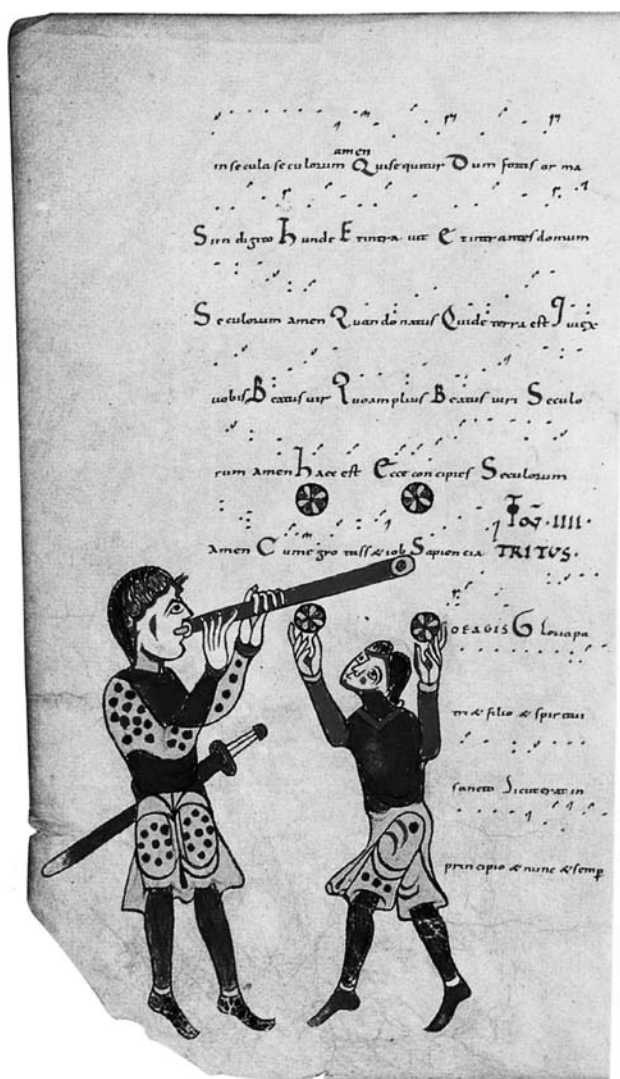 amen
in secula seculorum Quisequitur Dum fortis arma
Sim digito hunde Et intra uit Et intrantes domum
Seculorum amen Quando natus Qui de terra est
uobis Beatus uir Quo amplius Beatus uiri Seculo
rum amen haec est Ecce concipies Seculorum
.IIII.
amen Cum egrotass& iob Sapiencia TRITUS.
Gloria pa
tri & filio & spiritui
sancto Sicut erat in
principio & nunc & semp